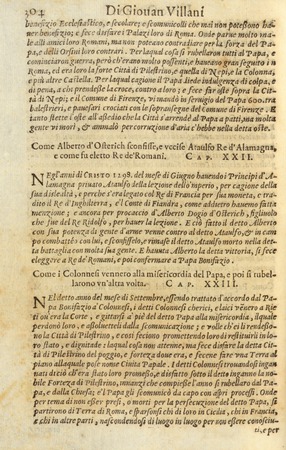 304 Di Giouan Villani
beneficio Ecclesiastico, e secolare; e scomunicolli che mai non potessono ha-
uer beneficio; e fece disfare i Palazzi loro di Roma. Onde parue molto ma-
le alli amici loro Romani, ma non poteano contradiare per la forza del Pa-
pa, e delli Orsini loro contrari. Per laqual cosa si rubellarono tutti al Papa, e
cominciarono guerra, però ch'erano molto possenti, e haueano gran seguito in
Roma, ed era loro la forte Città di Pilestrino, e quella di Nepi, e la Colonna,
e più altre Castella. Per laqual cagione il Papa diede indulgenza di colpa, e
di pena, a chi prendesse la croce, contro a loro; e fece far oste sopra la Cit-
tà di Nepi; e il Comune di Firenze, vi mandò in seruigio del Papa
lestrieri, e pauesari crociati con le soprauesegne del Comune di Firenze. E
tanto stette l'oste all'assedio che la Città s'arrendè al Papa a patti, ma molta
gente vi morì, e ammalò per corruzione d'aria c'hebbe nella detta oste.
Come Alberto d'Osterich sconfisse, e vccise Ataulfo Re d'Alamagna,
e come fu eletto Re de'Romani. CAP. XXII.
NEgl'anni di CRISTO 1298. del mese di Giugno hauendo i Principi d'A-
lamagna priuato Ataulfo della lezione dello'mperio, per cagione della
sua disleltà, e perche s'era legato col Re di Francia per sua moneta, e tra-
dito il Re d'Inghilterra, e'l Conte di Fiandra, come addietro hauemo fatta
menzione; e ancora per procaccio d'Alberto Dogio d'Osterich, figliuolo
che fue del Re Ridolfo, per hauer la lezione. E ciò fatto il detto Alberto
con sua potenza di gente d'arme venne contro al detto Ataulfo, & in cam-
po combattè con lui, e sconfisselo, e rimase il detto Ataulfo morto nella det-
ta battaglia con molta sua gente. E hauuta Alberto la detta vittoria, si fece
eleggere a Re de'Romani, e poi confermare a Papa Bonifazio.
Come i Colonnesi vennero alla misericordia del Papa, e poi si rubel-
larono vn'altra volta. CAP. XXIII.
NEl detto anno del mese di Settembre, essendo trattato d'accordo dal Pa-
pa Bonifazio a Colonnesi, i detti Colonnesi cherici, e laici vennero a Rie
ti ou'era la Corte, e gittarsi a piè del detto Papa alla misericordia, ilquale
perdonò loro, e assoluetteli dalla scomunicazione; e volle ch'e li rendesso-
no la Città di Pilestrino, e così feciono promettendo loro di restituirli in lo-
ro stato, e dignitade; laqual cosa non attenne, ma fece disfare la detta Cit-
tà di Pilestrino del poggio, e forteza doue era, e fecene fare vna Terra al
piano allaquale pose nome Ciuita Papale. I detti Colonnesi trouandosi ingan-
nati di ciò ch'era stato loro promesso, e disfatto sotto il detto inganno la no-
bile Forteza di Pilestrino, innanzi che compiesse l'anno si rubellaro dal Pa-
pa, e dalla Chiesa; e'l Papa gli scomunicò da capo con aspri processi. Onde
per tema di non esser presi, o morti per la persecuzione del detto Papa, si
partirono di Terra di Roma, e sparsonsi chi di loro in Cicilia, chi in Francia,
e chi in altre parti, nascondendosi di luogo in luogo per non essere conosciu-
ti, e per